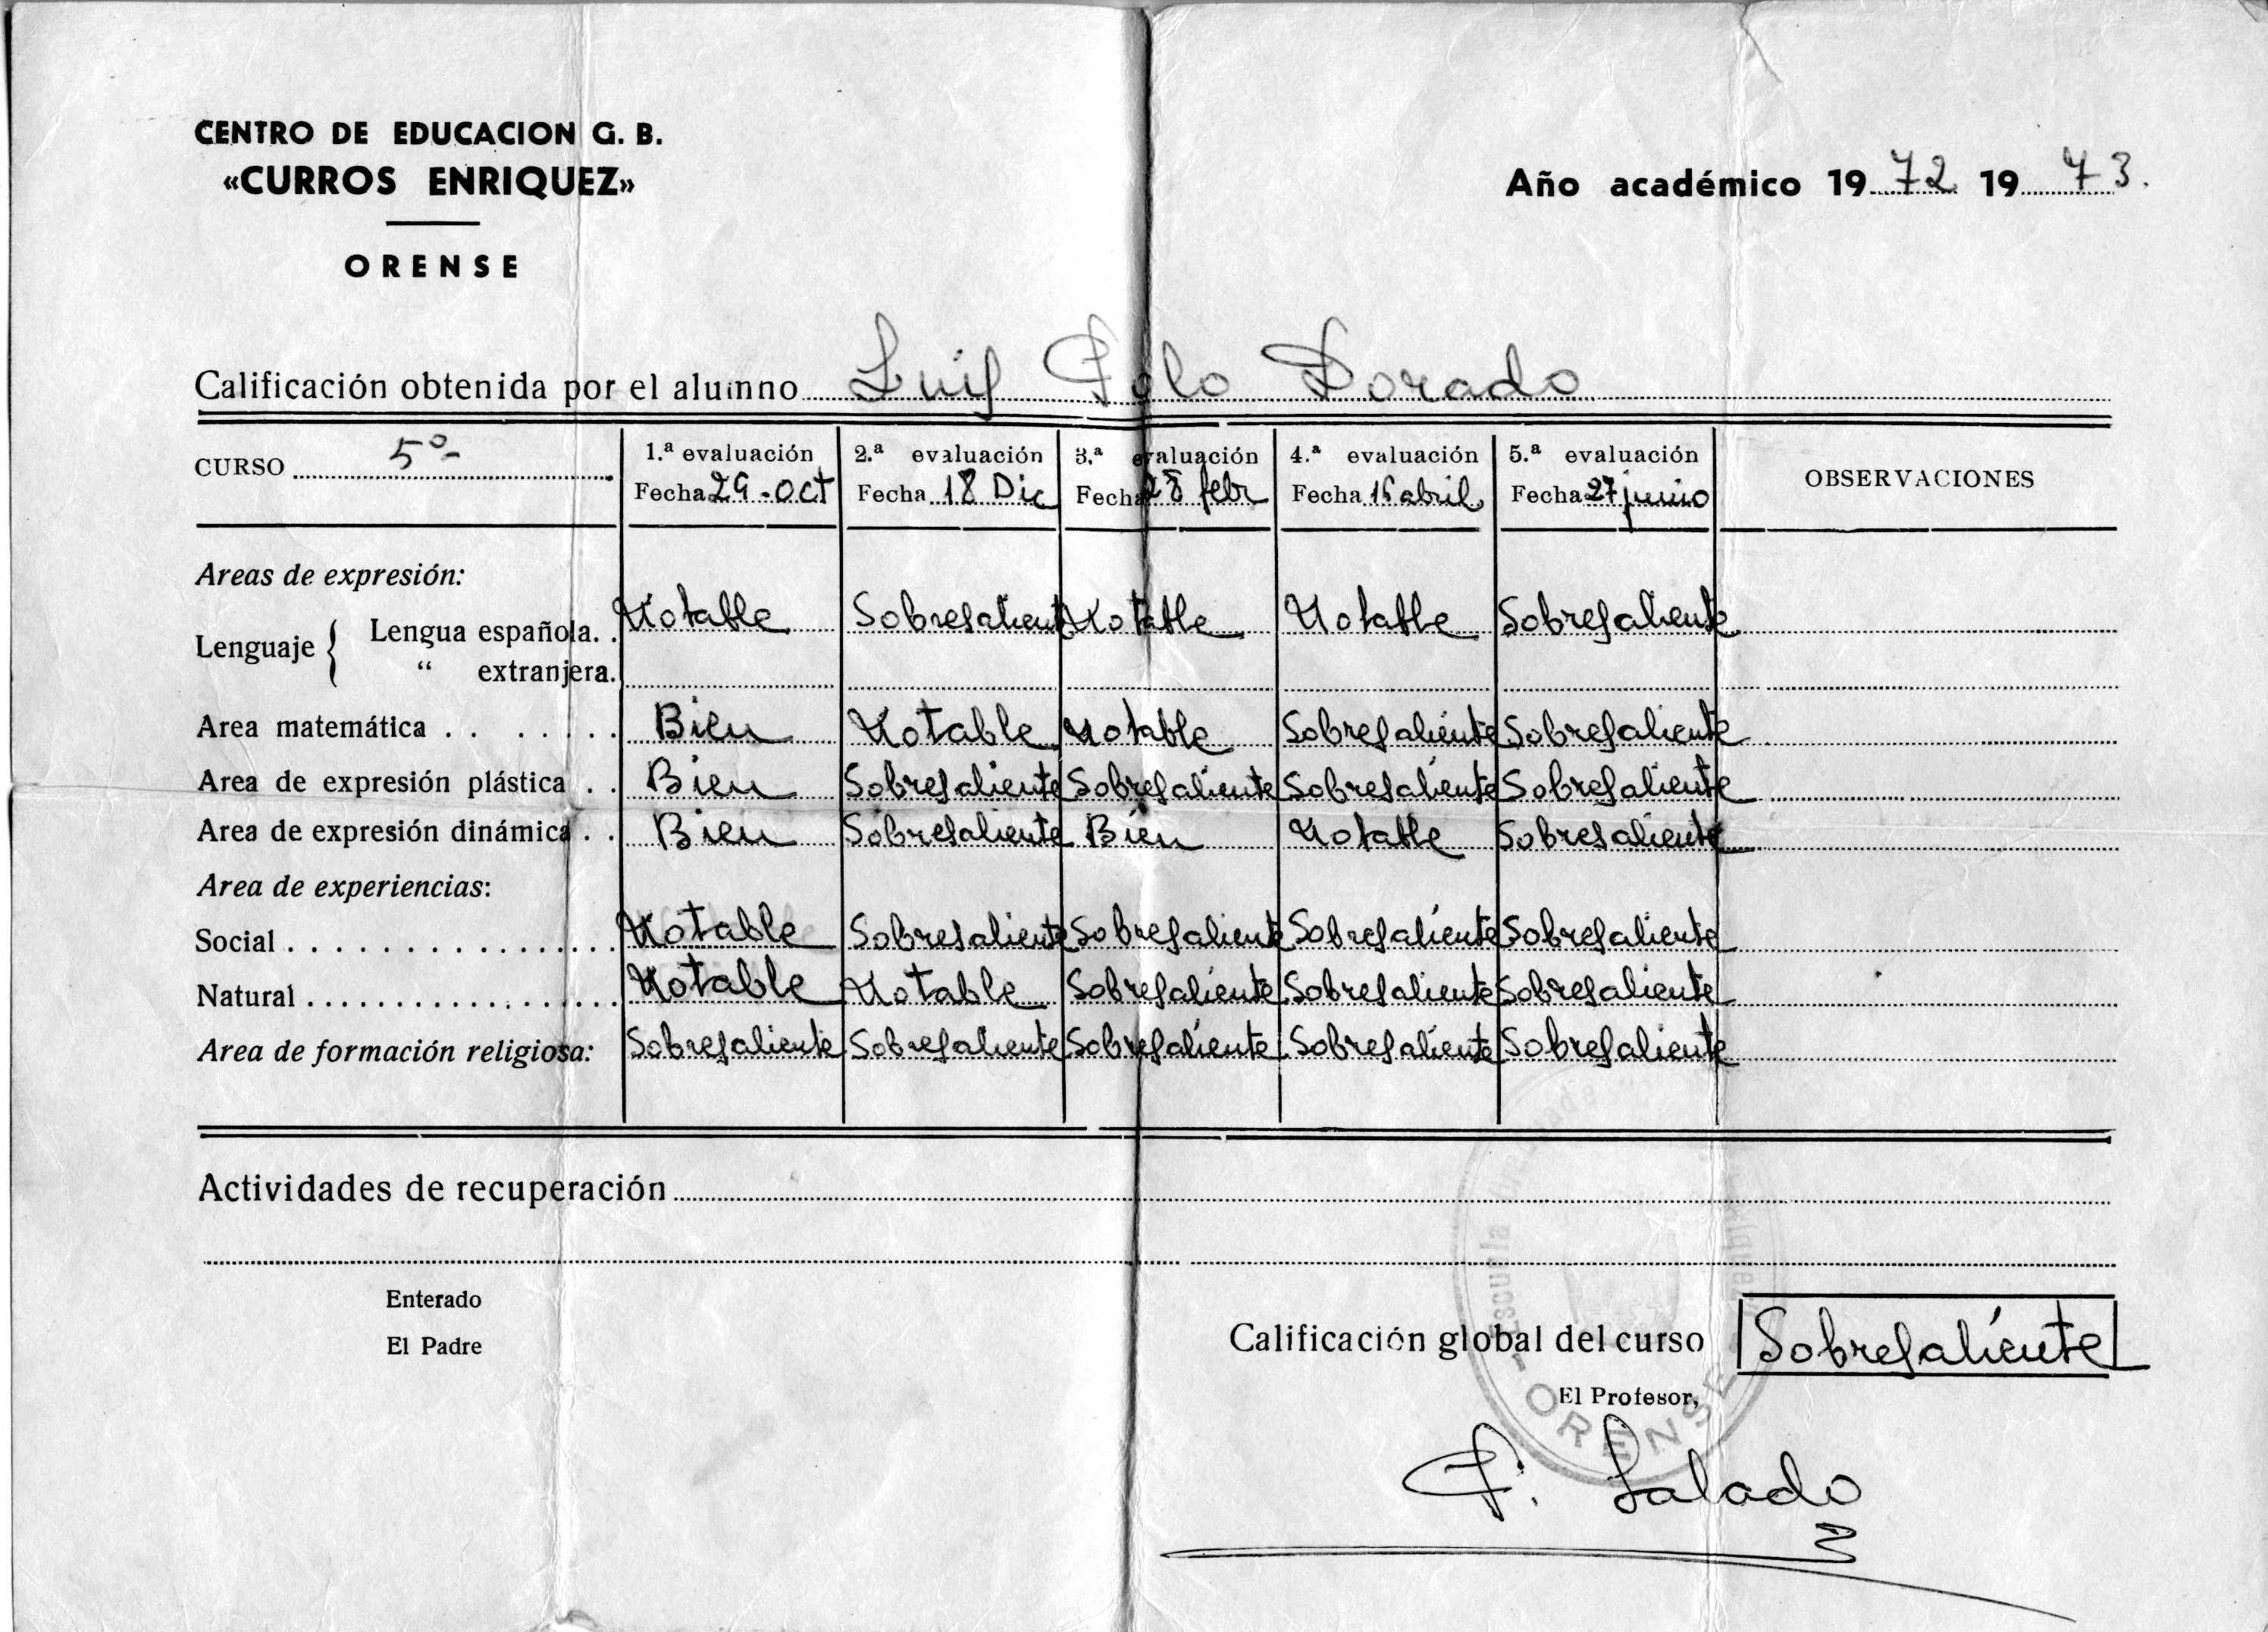 CENTRO DE EDUCACION G. B.
«CURROS ENRIQUEZ»
ORENSE
Año académico 1972 1973.
Calificación obtenida por el alumno Luis Polo Dorado
CURSO 5º 1.ª evaluación 2.ª evaluación 3.ª evaluación 4.ª evaluación 5.ª evaluación OBSERVACIONES
Fecha 29-oct Fecha 18 Dic Fecha 28 febr Fecha 16 abril Fecha 27 junio
Areas de expresión:
Lenguaje { Lengua española. . Notable Sobresaliente Notable Notable Sobresaliente
“ extranjera.
Area matemática . . . . . . Bien Notable Notable Sobresaliente Sobresaliente
Area de expresión plástica . . Bien Sobresaliente Sobresaliente Sobresaliente Sobresaliente
Area de expresión dinámica . . Bien Sobresaliente Bien Notable Sobresaliente
Area de experiencias:
Social . . . . . . . . . . . . . . . Notable Sobresaliente Sobresaliente Sobresaliente Sobresaliente
Natural . . . . . . . . . . . . . . . Notable Notable Sobresaliente Sobresaliente Sobresaliente
Area de formación religiosa: Sobresaliente Sobresaliente Sobresaliente Sobresaliente Sobresaliente
Actividades de recuperación
Enterado
El Padre
Calificación global del curso Sobresaliente
El Profesor,
ORENSE
F. Salado